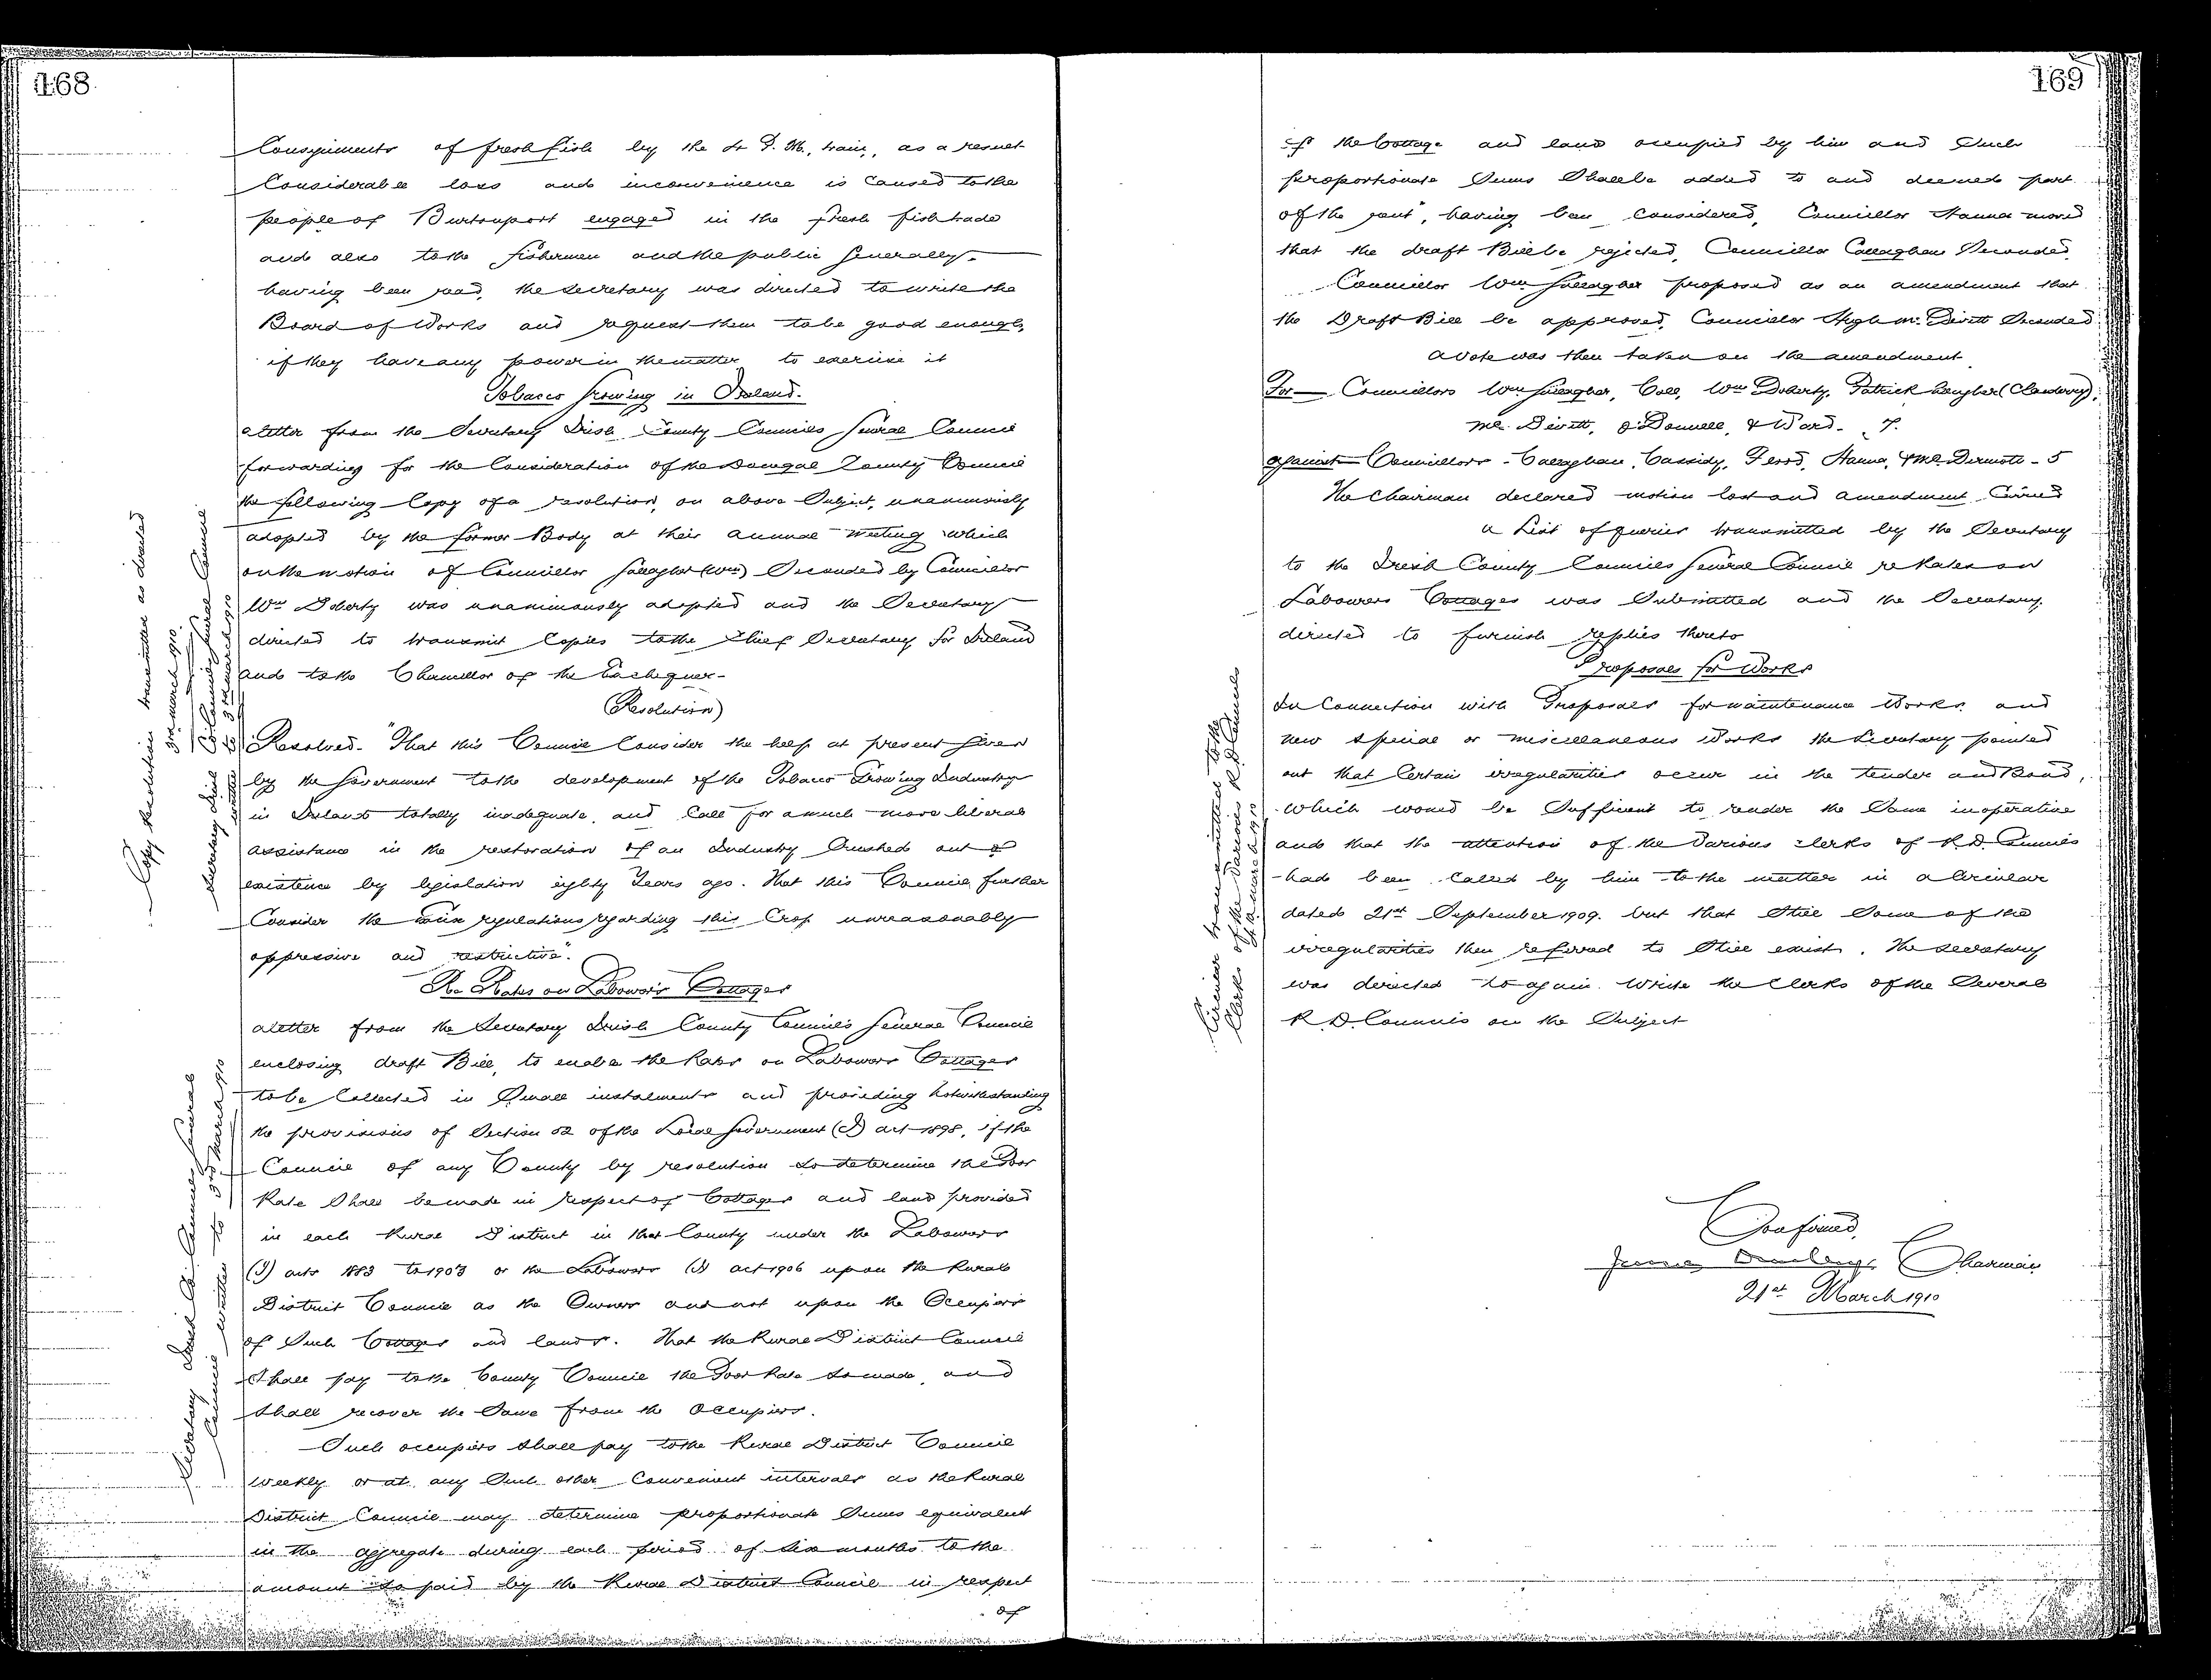 168
Consignments of fresh fish by the 4 P.M. train, as a result
Considerable loss and inconvenience is caused to the
people of Burtonport engaged in the fresh fish trade
and also to the fishermen and the public generally.
having been read, the Secretary was directed to write the
Board of Works and request them to be good enough,
if they have any power in the matter to exercise it
Tobacco Growing in Ireland.
a letter from the Secretary Irish County Councils General Council
forwarding for the Consideration of the Donegal County Council
the following Copy of a resolution, on above Subject, unanimously
adopted by the former Body at their annual meeting which
on the motion of Councillor Gallagher (Wm) Seconded by Councillor
Wm Doherty was unanimously adopted and the Secretary
directed to transmit Copies to the Chief Secretary for Ireland
and to the Chancellor of the Exchequer-
(Resolution)
Resolved- "That this Council Consider the help at present given
by the Government to the development of the Tobacco Growing Industry
in Ireland totally inadequate, and Call for a much more liberal
assistance in the restoration of an Industry Crushed out of
existence by legislation eighty Years ago. That this Council further
Consider the regulations regarding this Crop unreasonably
oppressive and restrictive".
Re Rates on Labourers Cottages
a letter from the Secretary Irish County Councils General Council
enclosing draft Bill, to enable the Rates on Labourers Cottages
to be Collected in Small instalments and providing notwithstanding
the provisions of Section 52 of the Local Government (I) act 1898, if the
Council of any County by resolution so determine the Poor
Rate Shall be made in respect of Cottages and land provided
in each Rural District in that County under the Labourers
(I) acts 1883 to 1903 or the Labourers (I) act 1906 upon the Rural
District Council as the Owners and not upon the Occupiers
of Such Cottages and lands. That the Rural District Council
Shall pay to the County Council the Poor Rate so made, and
Shall recover the Same from the Occupiers.
Such occupiers Shall pay to the Rural District Council
weekly or at any Such other Convenient intervals as the Rural
District Council may determine proportionate Sums equivalent
in the aggregate during each period of Six months to the
amount so paid by the Rural District Council in respect
of
Copy Resolution transmitted as directed
3rd March 1910.
Secretary Irish Co Councils General Council
written to 3rd March 1910
Secretary Irish Co Councils General
Council written to 3rd March 1910
169
of the Cottage and land occupied by him and Such
proportionate Sums Shall be added to and deemed part
of the rent", having been Considered, Councillor Hanna moved
that the draft Bill be rejected, Councillor Callaghan Seconded,
Councillor Wm Gallagher proposed as an amendment that
the Draft Bill be approved, Councillor Hugh Mc Devitt Seconded
a vote was then taken on the amendment
For — Councillors Wm Gallagher, Coll, Wm Doherty, Patrick Gallagher (Cloghery),
Mc Devitt, O'Donnell, & Ward. 7.
against Councillors - Callaghan, Cassidy, Hanna, & McDermott - 5
The Chairman declared motion lost and amendment Carried
a List of queries transmitted by the Secretary
to the Irish County Councils General Council re Rates on
Labourers Cottages was Submitted and the Secretary
directed to furnish replies thereto
Proposals for Works
In Connection with Proposals for maintenance Works and
new Special or miscellaneous Works the Secretary pointed
out that Certain irregularities occur in the tender and Bond,
which would be Sufficient to render the Same inoperative
and that the attention of the Various Clerks of R.D. Councils
had been Called by him to the matter in a Circular
dated 21st September 1909. but that Still Some of the
irregularities then referred to Still exist. The Secretary
was directed to again write the Clerks of the Several
R.D. Councils on the Subject
Circular transmitted to the
Clerks of the Various R.D. Councils
March 1910
Confirmed,
Chairman
21st March 1910